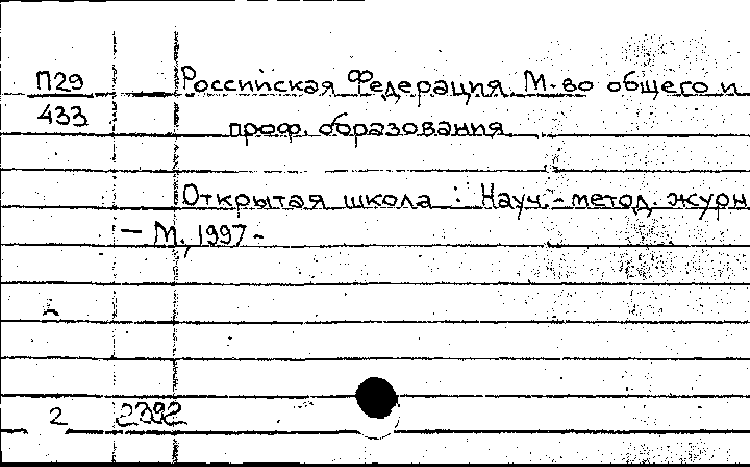 П29 Российская Федерация. М-во общего и
433 проф. образования.
Открытая школа : Науч.-метод. журн
— М., 1997-
2 2392